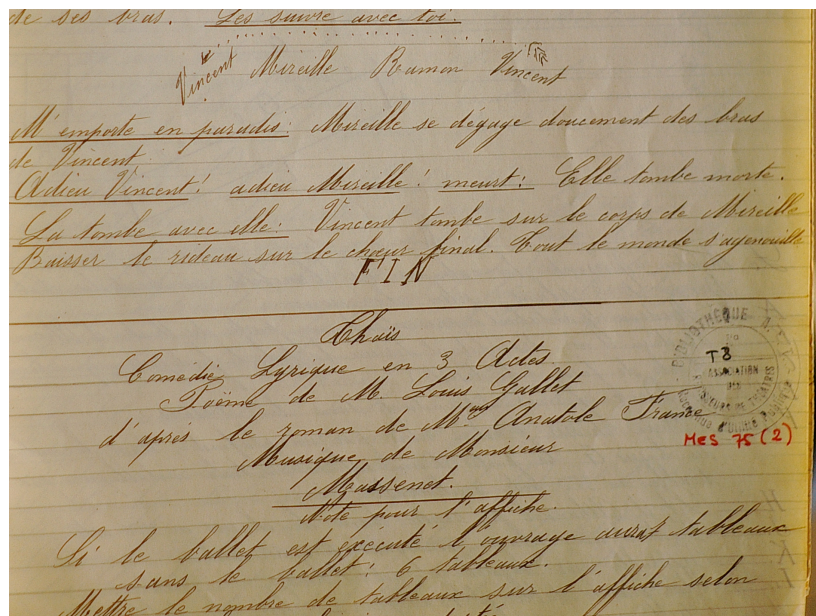 de ses bras. Les suivre avec toi.
Vincent Mireille Ramon Vincent
M'emporte en paradis: Mireille se dégage doucement des bras
de Vincent.
Adieu Vincent! adieu Mireille! meurt: Elle tombe morte.
La tombe avec elle: Vincent tombe sur le corps de Mireille
Baisser le rideau sur le chœur final. Tout le monde s'agenouille
FIN
Thaïs
Comédie Lyrique en 3 Actes
Poëme de M. Louis Gallet
d'après le roman de Mr Anatole France
Musique de Monsieur
Massenet.
Note pour l'affiche.
Si le ballet est exécuté l'ouvrage aura 7 tableaux
sans le ballet: 6 tableaux.
Mettre le nombre de tableaux sur l'affiche selon
BIBLIOTHÈQUE
T3
ASSOCIATION
DES
DE THÉATRES
MES 75 (2)